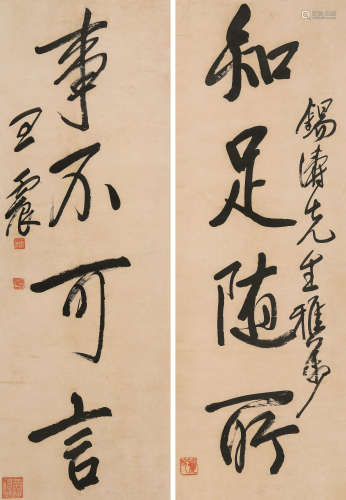 知足随所
锡濤先生雅属
事不可言
王震